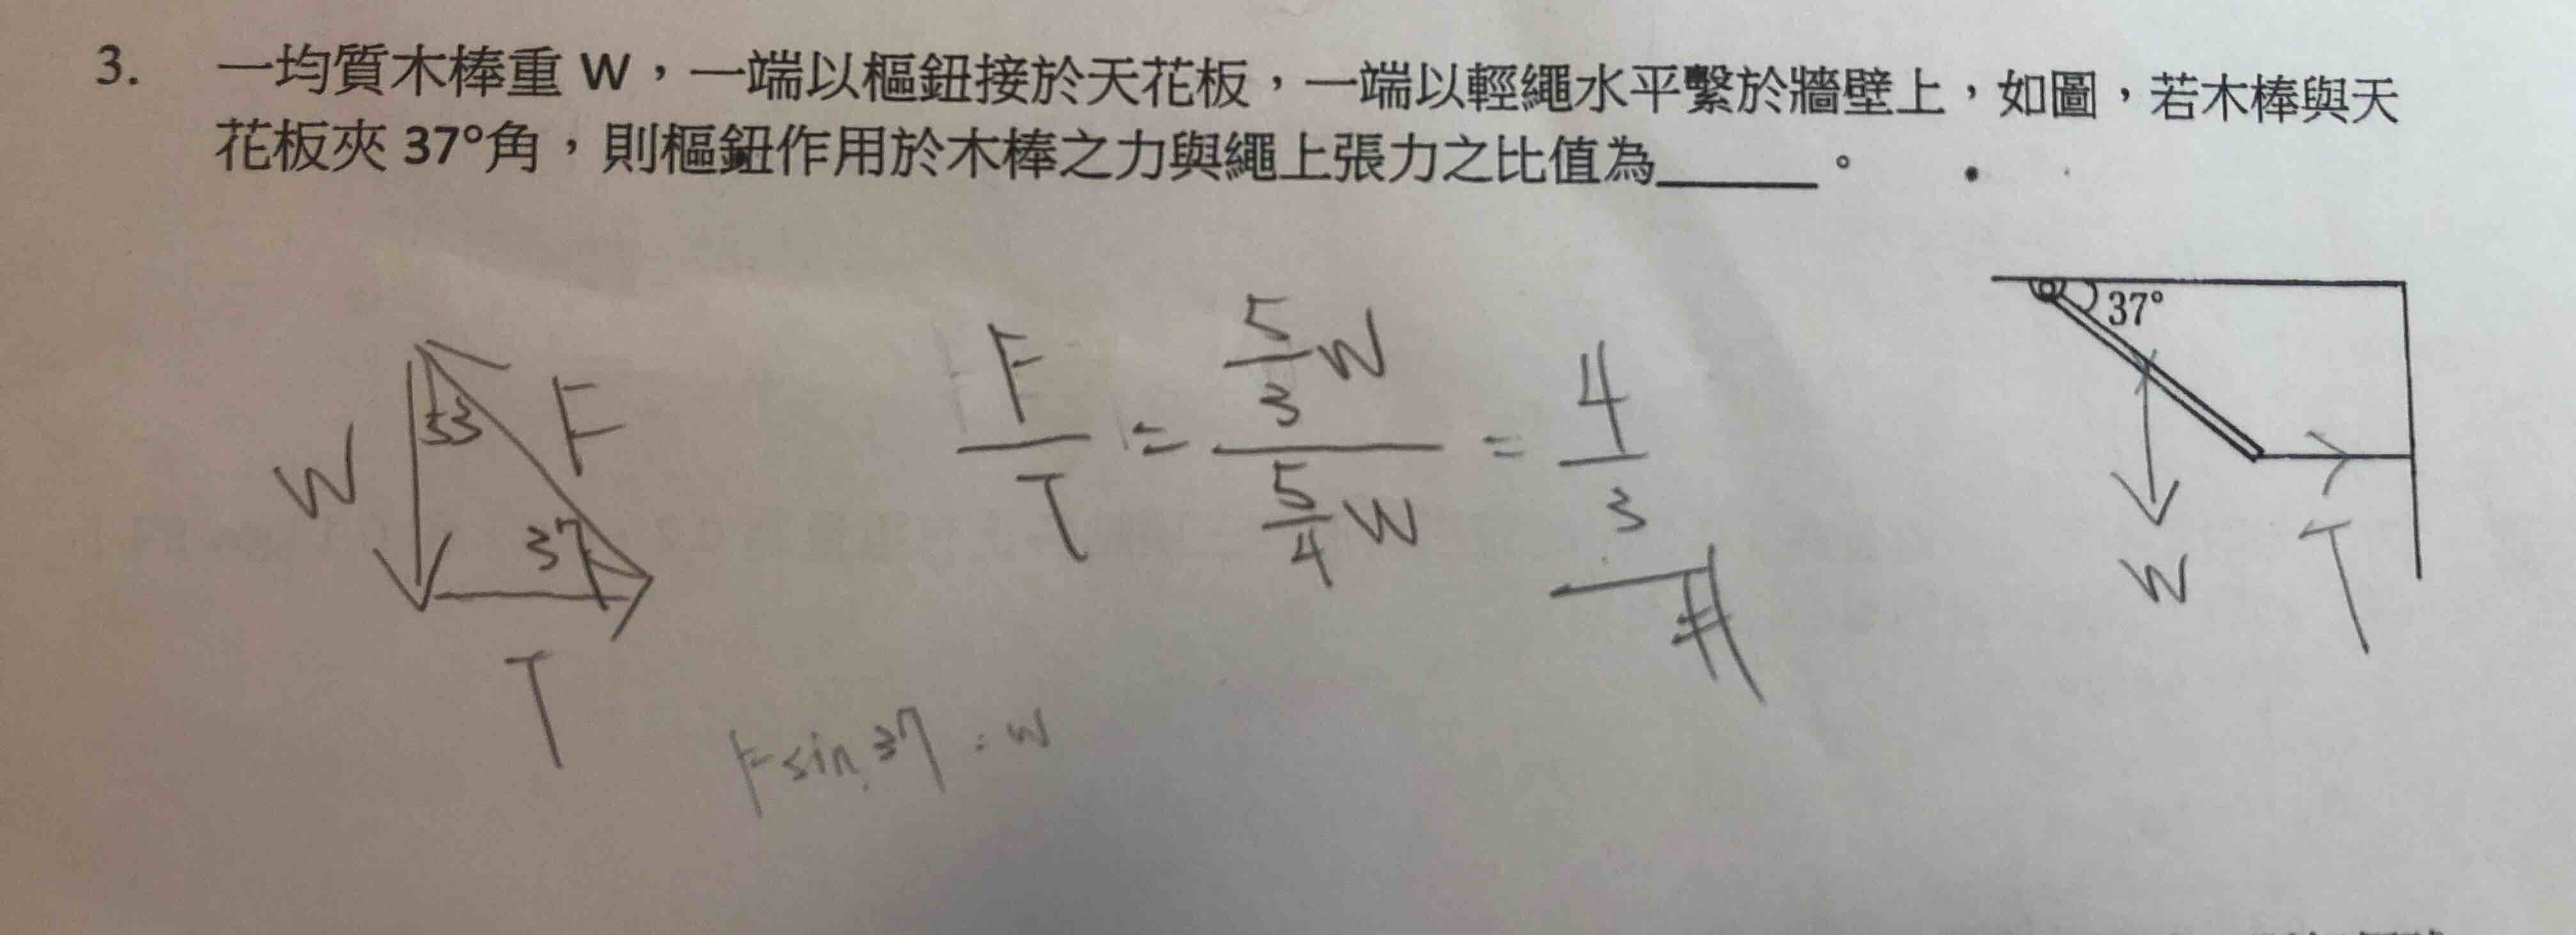 3. 一均質木棒重 W，一端以樞鈕接於天花板，一端以輕繩水平繫於牆壁上，如圖，若木棒與天
花板夾 37°角，則樞鈕作用於木棒之力與繩上張力之比值為______。
37°
W
T
W
53
F
37
T
F/T = (5/3 W)/(5/4 W) = 4/3 #
F sin 37 = W